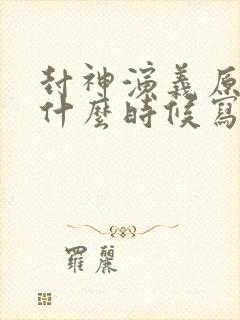 封神演義原
什麼時候寫
羅麗